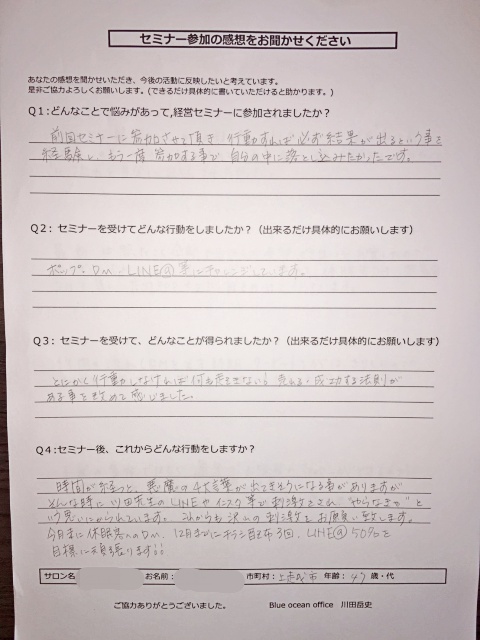 セミナー参加の感想をお聞かせください
あなたの感想を聞かせいただき、今後の活動に反映したいと考えています。
是非ご協力よろしくお願いします。(できるだけ具体的に書いていただけると助かります。)
Q1:どんなことで悩みがあって,経営セミナーに参加されましたか?
前回セミナーに参加させて頂き 行動すれば必ず結果が出るという事を
経験し、もう一度 参加する事で 自分の中に落とし込みたかったです。
Q2:セミナーを受けてどんな行動をしましたか?(出来るだけ具体的にお願いします)
ポップ。DM、LINE@ 等にチャレンジしています。
Q3:セミナーを受けて、どんなことが得られましたか?(出来るだけ具体的にお願いします)
とにかく行動しなければ何も起きない! 売れる・成功する法則が
ある事を改めて感じました。
Q4:セミナー後、これからどんな行動をしますか?
時間が経つと、悪魔の4大言葉が出てきそうになる事がありますが
そんな時に 川田先生の LINEや インスタ等で刺激をされ "やらなきゃ" と
いう思いにかられています。これからも沢山の刺激をお願い致します。
今月末に休眠客へのDM、12月までにチラシ配布3回、LINE@ 50%を
目標に頑張ります!!
サロン名 お名前: 市町村: 年齢:47歳・代
ご協力ありがとうございました。 Blue ocean office 川田岳史